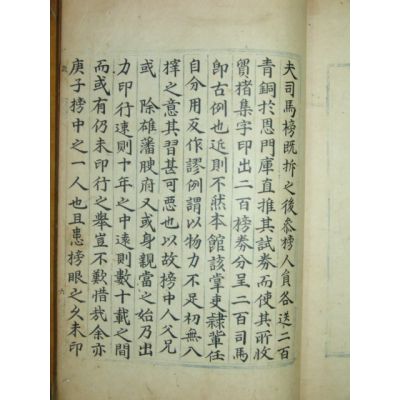 夫司馬榜旣拆之後叅榜人負各送二百
靑銅於恩門庫直推其試券而使其所收
貿楮集字印出二百榜券分呈二百司馬
卽古例也近則不然本館該掌吏隷輩任
自分用反作謬例謂以物力不足初無入
梓之意其習甚可惡也以故榜中人父兄
或 除雄藩腴府又或身親當之始乃出
力印行速則十年之中遠則數十載之間
而或有仍未印行之擧豈不歎惜哉余亦
庚子榜中之一人也且患榜眼之久未印